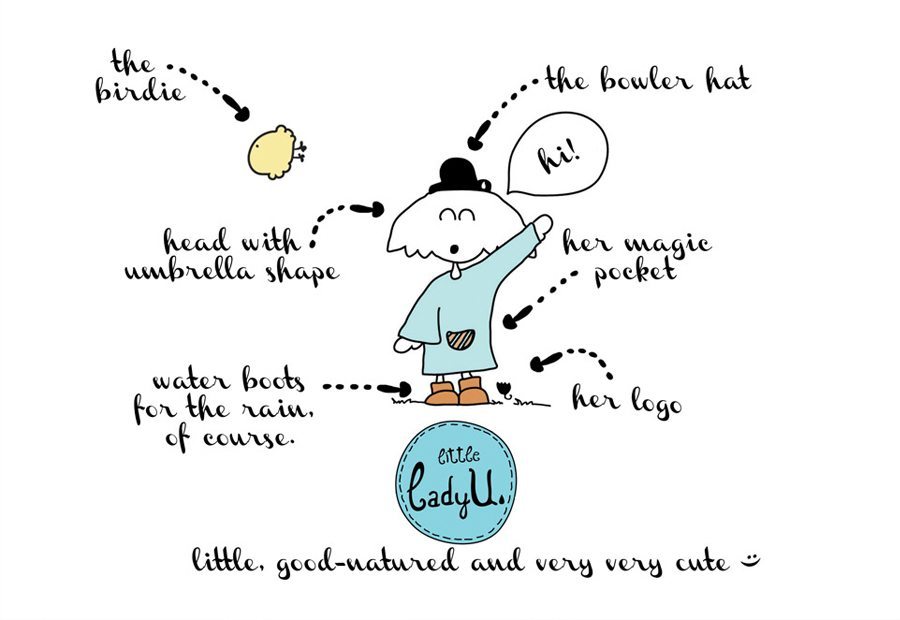 the
birdie
the bowler hat
hi!
head with
umbrella shape
her magic
pocket
water boots
for the rain,
of course.
her logo
little
LadyU.
little, good-natured and very very cute